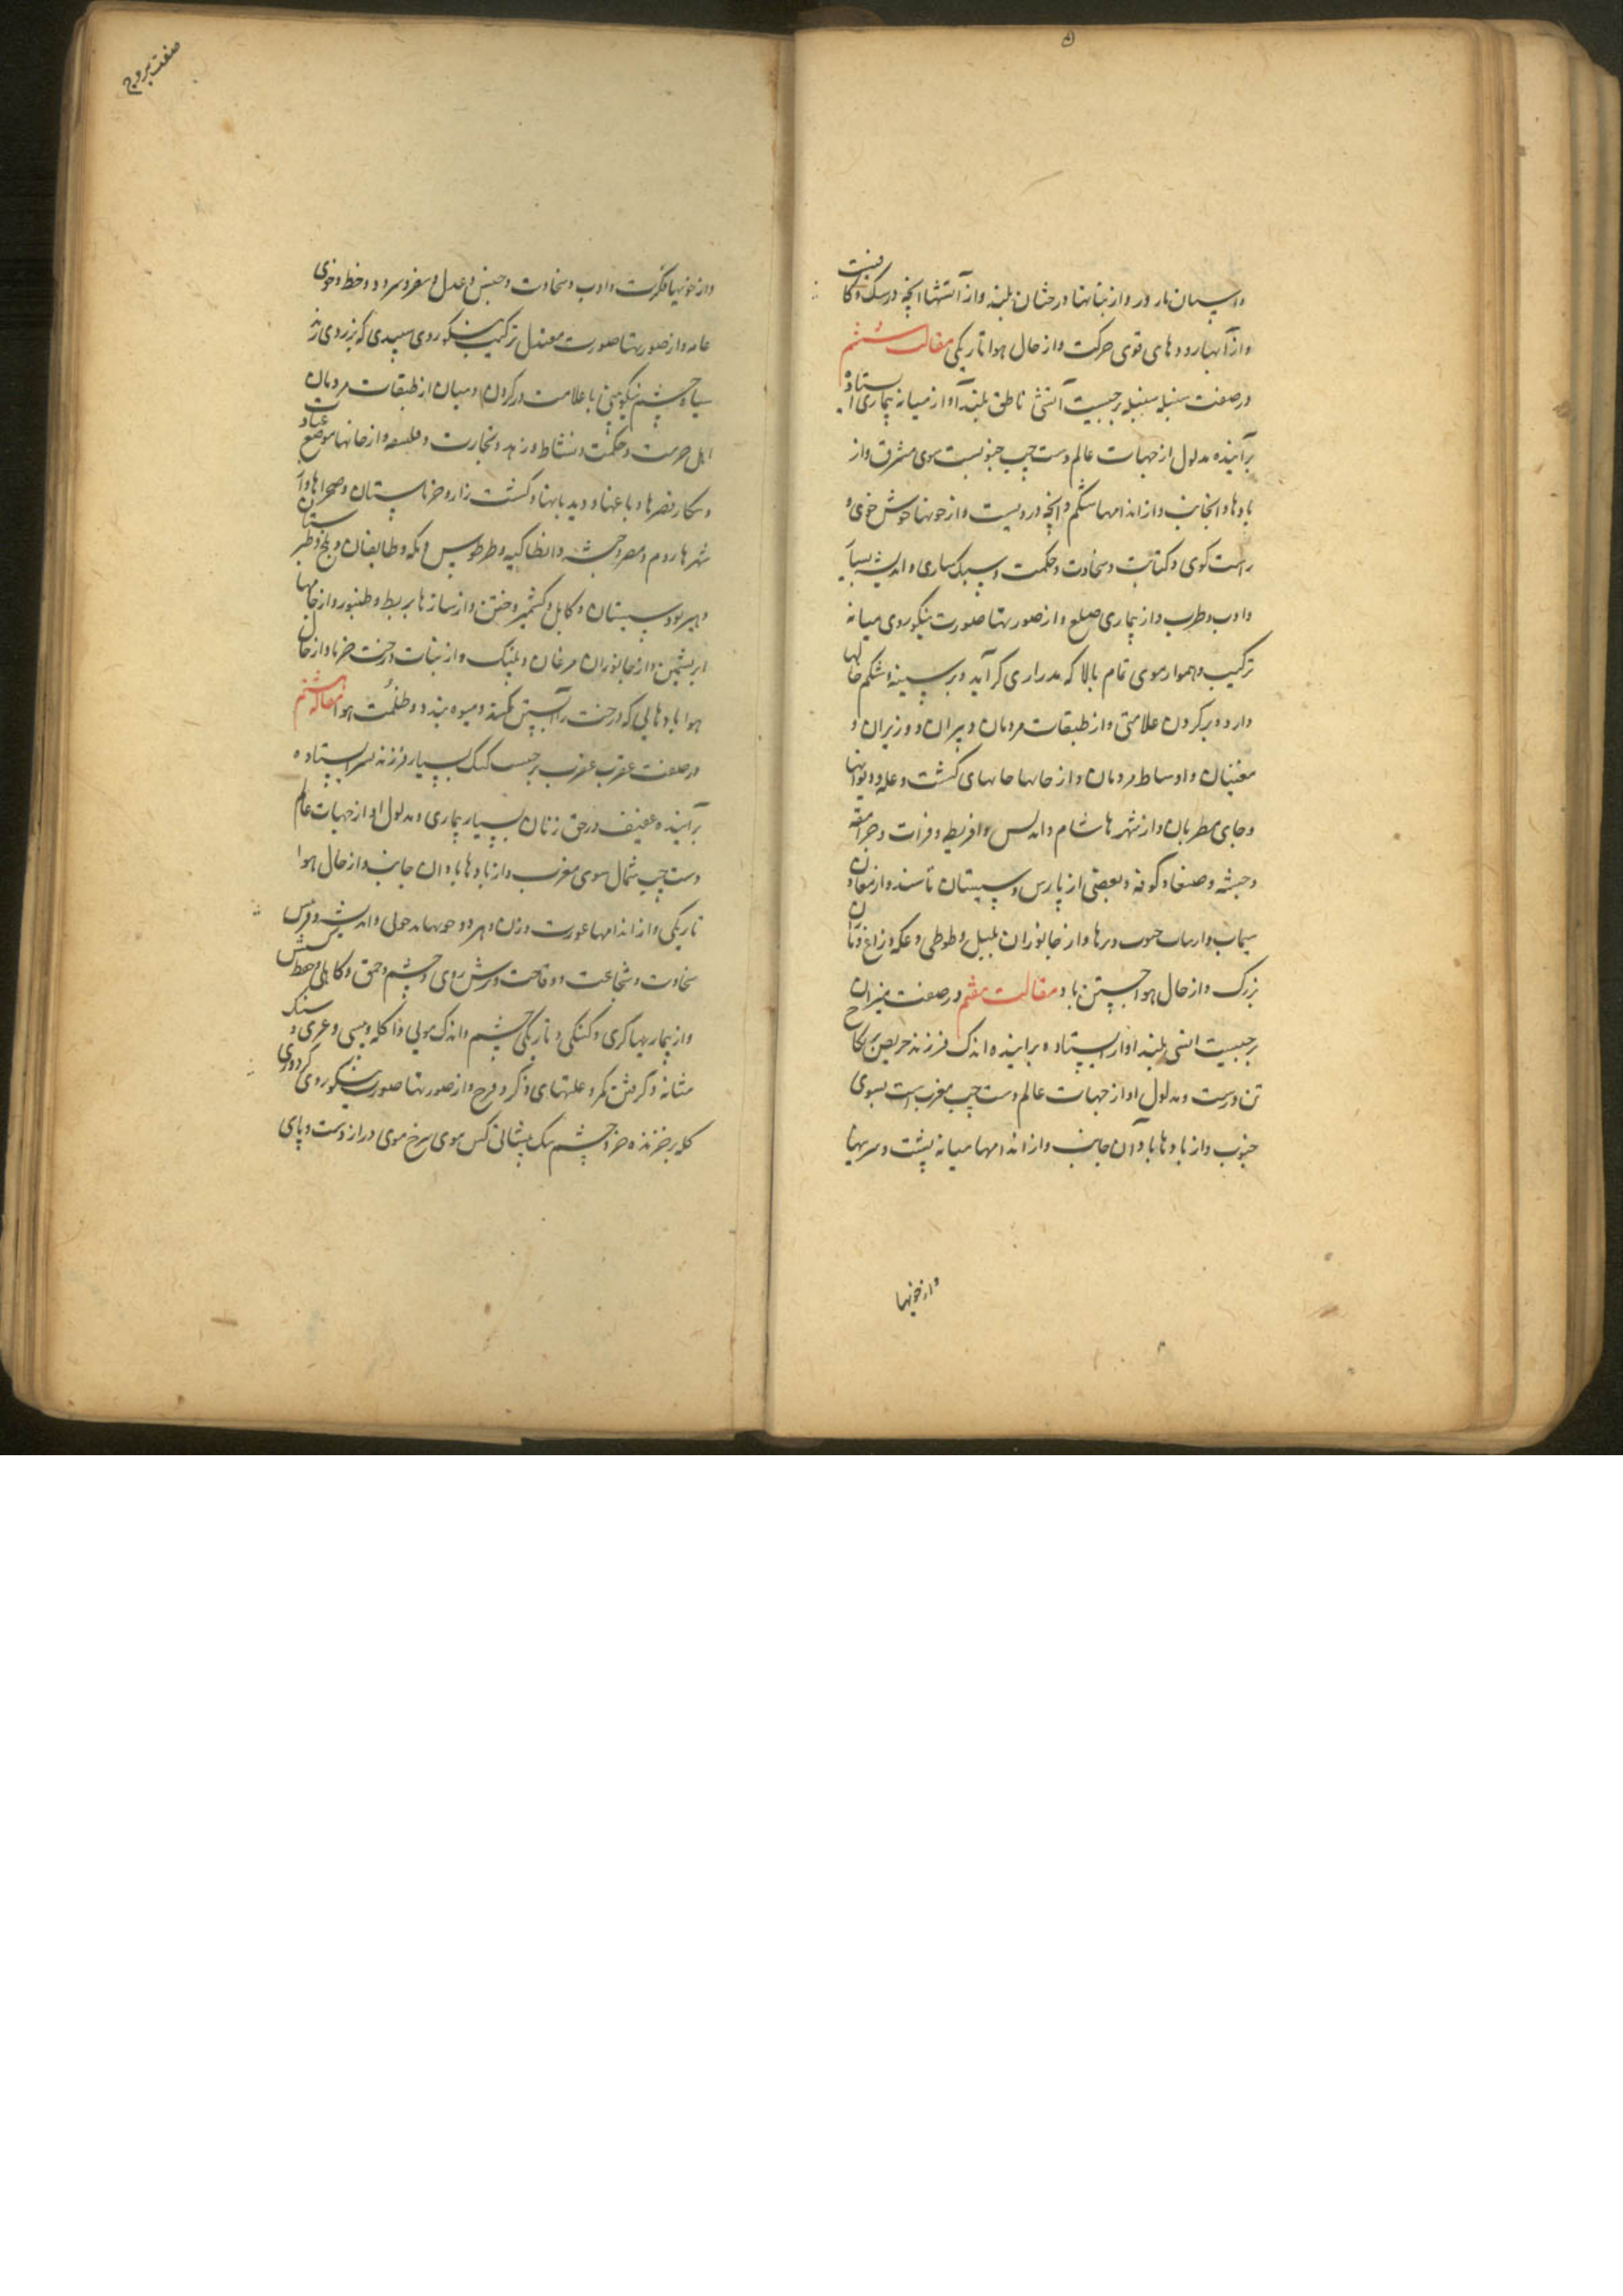 واسپان نادر و از نباتها درختان بلند و از آتشها انچه در سنک و کا
و از آبها رودهای قوی حرکت و از حال هوا تاریکی مقالت ششم
در صفت سنبله سنبله برجیست آتشی ناطق بلند آواز میانه بیماری استاذه
برآینده مدلول از جهات عالم دست چپ جنوبست سوی مشرق و از
بادها و انجانب و از اندامها شکم و انچه درویست و از خویها خوش خوی و
راست کوی و کتابت و سخاوت و حکمت و سبک ساری و اندیشه بسیار
و ادب و طرب و از بیماری صلع و از صورتها صورت نیکو روی میانه
ترکیب و هموار موی تمام بالا که بدرازی کرآید و بر سینه و شکم خالها
دارد و بر کردن علامتی و از طبقات مردمان دبیران و وزیران و
مغنیان و اوساط مردمان و از جایها جایهای کشت و غله و دیوانها
و جای مطربان و از شهرها شام و اندلس و افریطه و فرات و جرامقه
و حبشه و صنعا و کوفه و بعضی از پارس و سیستان باشند و از معادن
سیماب و از نبات حبوب و برها و از جانوران بلبل و طوطی و عکه و زاغ و
بزرک و از حال هوا جستن باد و مقالت هفتم در صفت میزان
برجیست آتشی بلند آواز ایستاده برآینده اندک فرزند حریص بر نکاح
تن درست و مدلول او از جهات عالم دست چپ مغربست بسوی
جنوب و از بادها باد آن جانب و از اندامها میانه پشت و سرینها
و از خویها
صفت بروج
و از خویها فکرت و ادب و سخاوت و جبن و عدل و سفر و سرود و خط و خوی
عامه و از صورتها صورت معتدل ترکیب نیکو روی سپیدی که بزردی زند
سیاه چشم نیکو بینی با علامت در کردن و میان از طبقات مردمان
اهل حرمت و حکمت و نشاط و زهد و تجارت و فلسفه و از جایها موضع عبادت
و شکار و قصرها و باغها و دیدبانها و کشت زار و خرماستان و صحراها و آ
شهرها روم و مصر و حبشه و انطاکیه و طرطوس و مکه و طایقان و بلخ و طبرستان
و هیر و سیستان و کابل و کشمیر و ختن و از سازها بربط و طنبور و از جامها
ابریشمین و از جانوران مرغان و پلنک و از نبات درخت خرما و از حال
هوا بادهایی که درخت را آبستن بکند و میوه بندد و ظلمت هوا مقاله هشتم
در صفت عقرب عقرب برجیست کنک بسیار فرزند ایستاده
برآینده عفیف در حق زنان بسیار بیماری و مدلول او از جهات عالم
دست چپ شمال سوی مغرب و از بادها باد آن جانب و از حال هوا
تاریکی و از اندامها عورت و زن و مرد و خویها بدخویی و اندیشه و
سخاوت و شجاعت و وقاحت و ترش روی و خشم و حمق و کاهلی و
و از بیماریها کری و کنکی و تاریکی چشم و اندک مویی و اکله و پیسی و جرب و سنک
مثانه و کرفتن کمر و علتهای ذکر و فرج و از صورتها صورت نیکو روی
کله بر خزنده خرد چشم تنک پیشانی کس موی سرخ موی دراز دست و پای